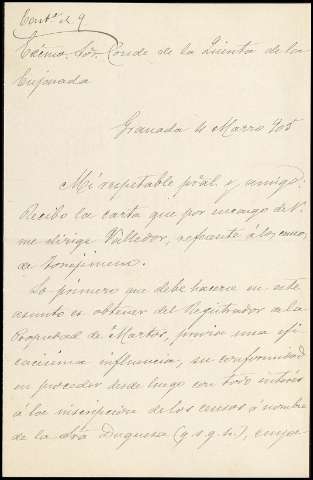 Contdo el 9
Excmo. Sor. Conde de la Quinta de la
Enjarada
Granada 4 Marzo 905
Mi respetable pral. y amigo:
Recibo la carta que por encargo de V.
me dirige Valledor, refrante á los censos
de Torrejimeno.
Lo primero que debe hacerse en este
asunto es obtener del Registrador de la
Propiedad de Martos, previa una efi
cacisima influencia, su conformidad
en proceder desde luego con todo interés
á la inscripcion de los censos á nombre
de la Sra Duquesa (q. s. g. h.), cuya-